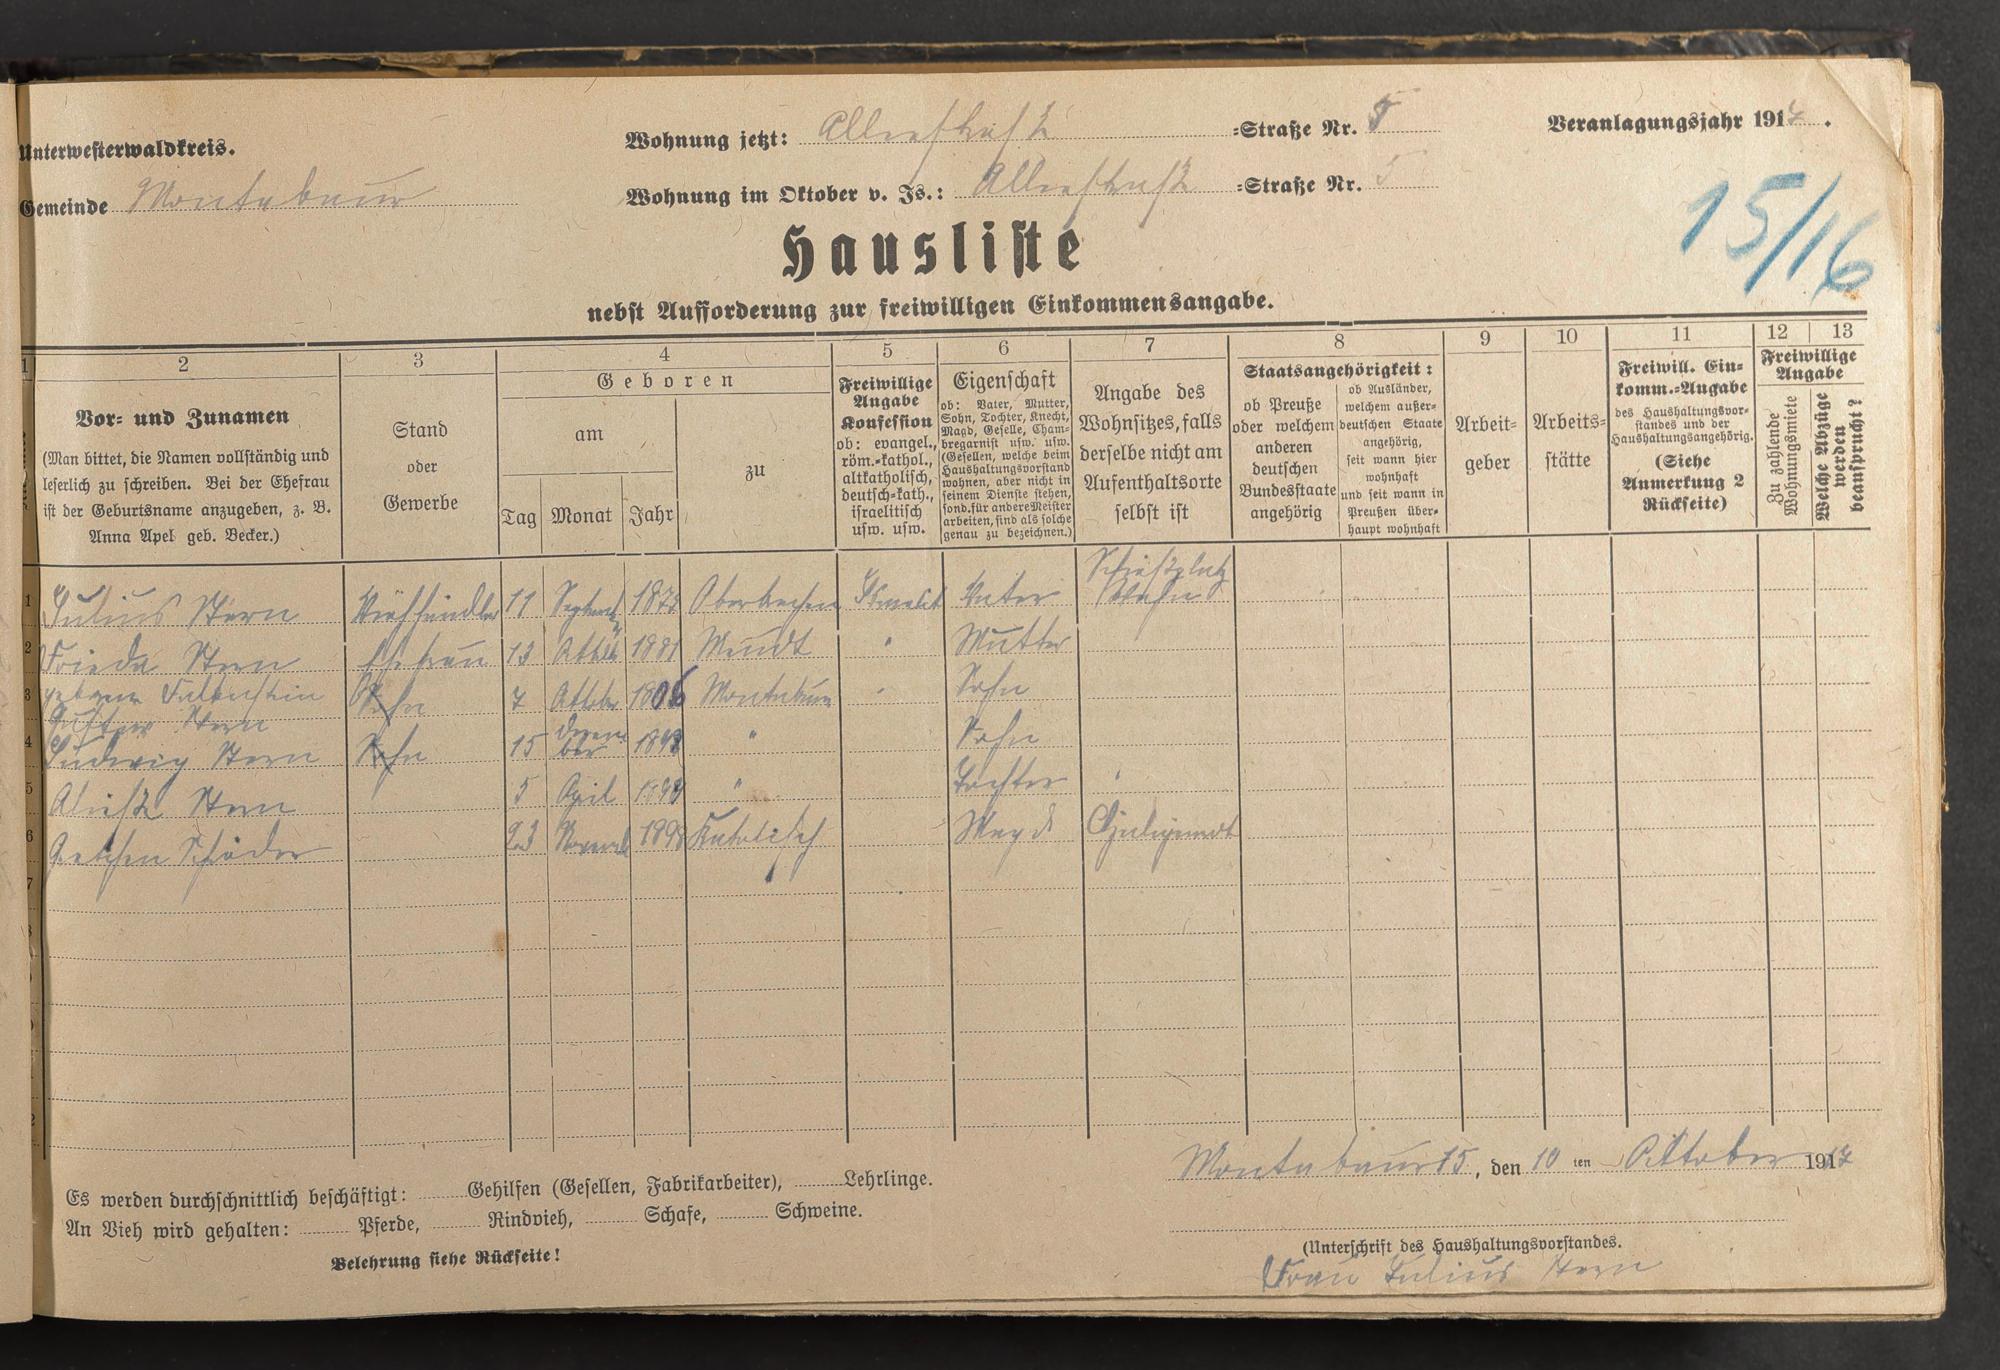 Unterwesterwaldkreis.
Gemeinde Montabaur
Wohnung jetzt: Alleestraße =Straße Nr. 5
Wohnung im Oktober v. Js.: Alleestraße =Straße Nr. 5
Veranlagungsjahr 1917.
15/16
Hausliste
nebst Aufforderung zur freiwilligen Einkommensangabe.
1 2 3 4 5 6 7 8 9 10 11 12 13
Vor- und Zunamen
(Man bittet, die Namen vollständig und
leserlich zu schreiben. Bei der Ehefrau
ist der Geburtsname anzugeben, z. B.
Anna Apel geb. Becker.)
Stand
oder
Gewerbe
Geboren
am
Tag Monat Jahr
zu
Freiwillige
Angabe
Konfession
ob: evangel.,
röm.-kathol.,
altkatholisch,
deutsch-kath.,
israelitisch
usw. usw.
Eigenschaft
ob: Vater, Mutter,
Sohn, Tochter, Knecht,
Magd, Geselle, Cham-
bregarnist usw. usw.
(Gesellen, welche beim
Haushaltungsvorstand
wohnen, aber nicht in
seinem Dienste stehen,
sond. für andere Meister
arbeiten, sind als solche
genau zu bezeichnen.)
Angabe des
Wohnsitzes, falls
derselbe nicht am
Aufenthaltsorte
selbst ist
Staatsangehörigkeit:
ob Preuße
oder welchem
anderen
deutschen
Bundesstaate
angehörig
ob Ausländer,
welchem außer-
deutschen Staate
angehörig,
seit wann hier
wohnhaft
und seit wann in
Preußen über-
haupt wohnhaft
Arbeit-
geber
Arbeits-
stätte
Freiwill. Ein-
komm.-Angabe
des Haushaltungsvor-
standes und der
Haushaltungsangehörig.
(Siehe
Anmerkung 2
Rückseite)
Freiwillige
Angabe
Zu zahlende
Wohnungsmiete
Welche Abzüge
werden
beansprucht?
1 Julius Stern Viehhändler 11 September Israelit Vater Schießplatz
2 Frieda Stern Ehefrau 13 1881 Meudt " Mutter
geborene Falkenstein
3 Gustav Stern Sohn 7 Oktober 1906 Montabaur " Sohn
4 Ludwig Stern Sohn 15 Dezember " Sohn
5 Stern 5 April " Tochter
6 Gretchen Schäder 23 Katolisch Magd
7
Es werden durchschnittlich beschäftigt: Gehilfen (Gesellen, Fabrikarbeiter), Lehrlinge.
An Vieh wird gehalten: Pferde, Rindvieh, Schafe, Schweine.
Belehrung siehe Rückseite!
Montabaur 15, den 10 ten Oktober 1917
(Unterschrift des Haushaltungsvorstandes.
Frau Julius Stern